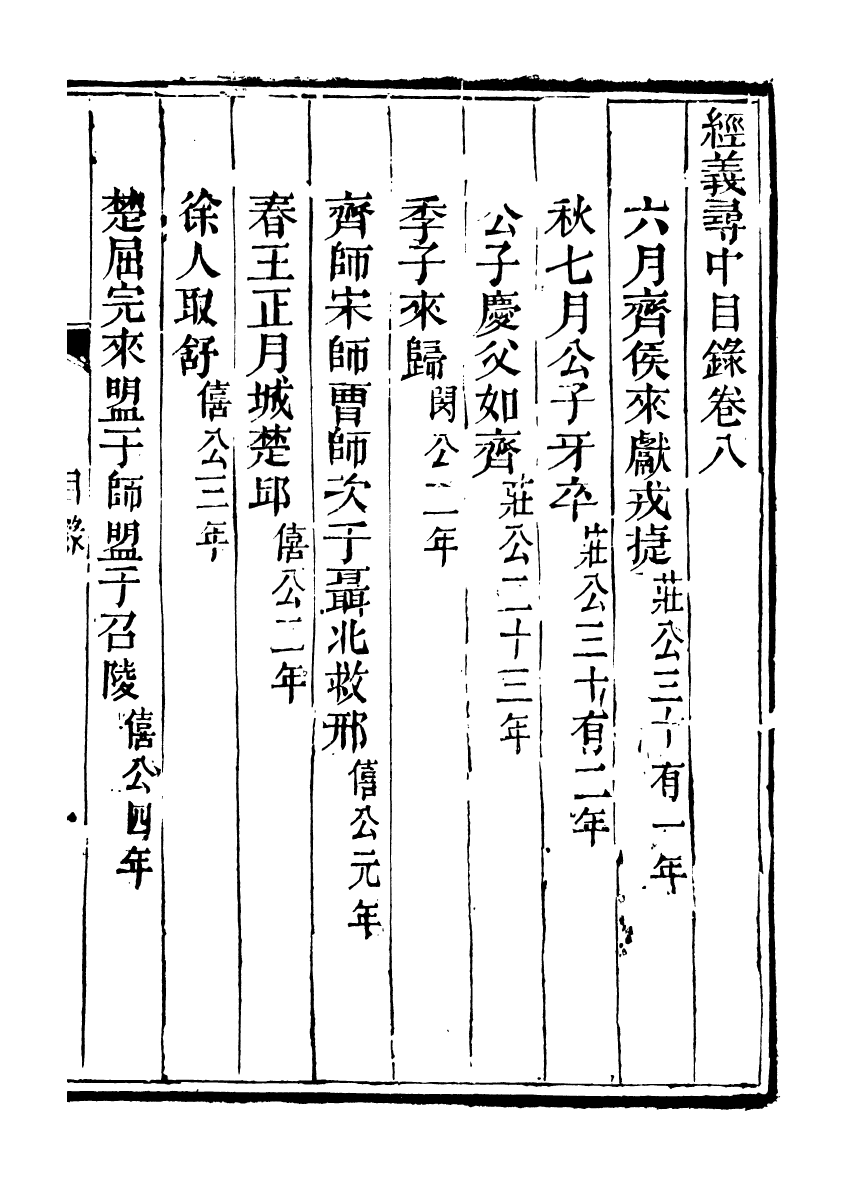 經義尋中目錄卷八
六月齊侯來獻戎捷莊公三十有一年
秋七月公子牙卒莊公三十有二年
公子慶父如齊莊公二十三年
季子來歸閔公二年
齊師宋師曹師次于聶北救邢僖公元年
春王正月城楚邱僖公二年
徐人取舒僖公三年
楚屈完來盟于師盟于召陵僖公四年
目錄